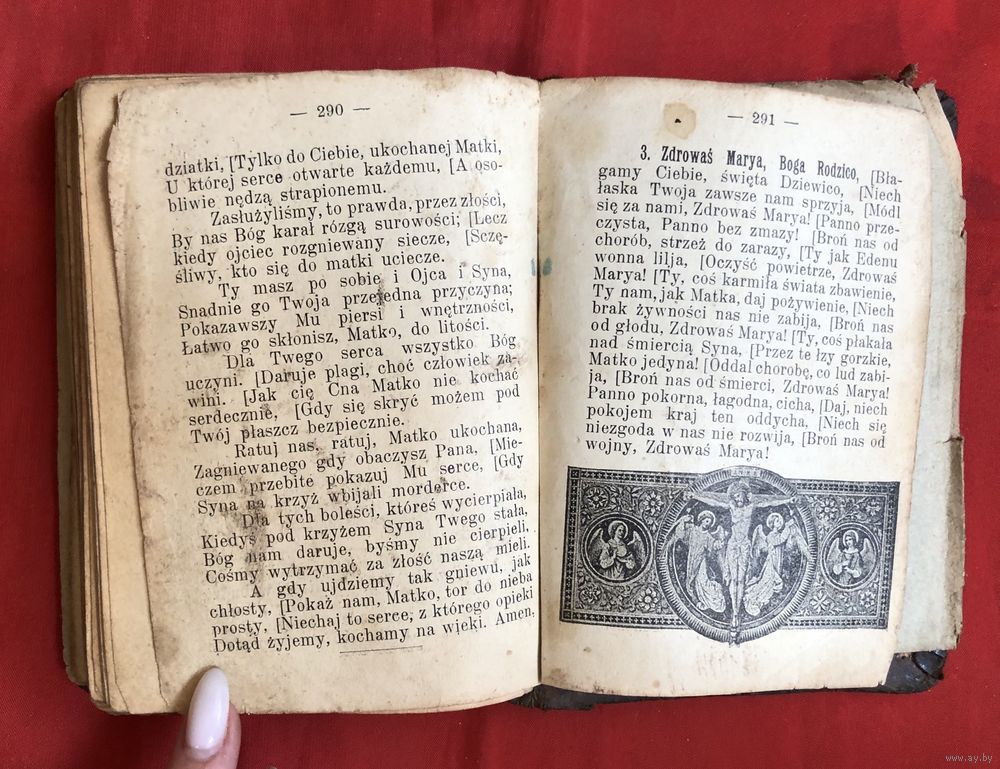 — 290 —
dziatki, [Tylko do Ciebie, ukochanej Matki,
U której serce otwarte każdemu, [A oso-
bliwie nędzą strapionemu.
Zasłużyliśmy, to prawda, przez złości,
By nas Bóg karał rózgą surowości; [Lecz
kiedy ojciec rozgniewany siecze, [Szczę-
śliwy, kto się do matki uciecze.
Ty masz po sobie i Ojca i Syna,
Snadnie go Twoja przejedna przyczyna;
Pokazawszy Mu piersi i wnętrzności,
Łatwo go skłonisz, Matko, do litości.
Dla Twego serca wszystko Bóg
uczyni. [Daruje plagi, choć człowiek za-
wini. [Jak cię Cna Matko nie kochać
serdecznie, [Gdy się skryć możem pod
Twój płaszcz bezpiecznie.
Ratuj nas, ratuj, Matko ukochana,
Zagniewanego gdy obaczysz Pana, [Mie-
czem przebite pokazuj Mu serce, [Gdy
Syna na krzyż wbijali morderce.
Dla tych boleści, któreś wycierpiała,
Kiedyś pod krzyżem Syna Twego stała,
Bóg nam daruje, byśmy nie cierpieli.
Cośmy wytrzymać za złość naszą mieli.
A gdy ujdziemy tak gniewu, jak
chłosty, [Pokaż nam, Matko, tor do nieba
prosty, [Niechaj to serce, z którego opieki
Dotąd żyjemy, kochamy na wieki. Amen.
— 291 —
3. Zdrowaś Marya, Boga Rodzico, [Bła-
gamy Ciebie, święta Dziewico, [Niech
łaska Twoja zawsze nam sprzyja, [Módl
się za nami, Zdrowaś Marya! [Panno prze-
czysta, Panno bez zmazy! [Broń nas od
chorób, strzeż do zarazy, [Ty jak Edenu
wonna lilja, [Oczyść powietrze, Zdrowaś
Marya! [Ty, coś karmiła świata zbawienie,
Ty nam, jak Matka, daj pożywienie, [Niech
brak żywności nas nie zabija, [Broń nas
od głodu, Zdrowaś Marya! [Ty, coś płakała
nad śmiercią Syna, [Przez te łzy gorzkie,
Matko jedyna! [Oddal chorobę, co lud zabi-
ja, [Broń nas od śmierci, Zdrowaś Marya!
Panno pokorna, łagodna, cicha, [Daj, niech
pokojem kraj ten oddycha, [Niech się
niezgoda w nas nie rozwija, [Broń nas od
wojny, Zdrowaś Marya!
www.ay.by